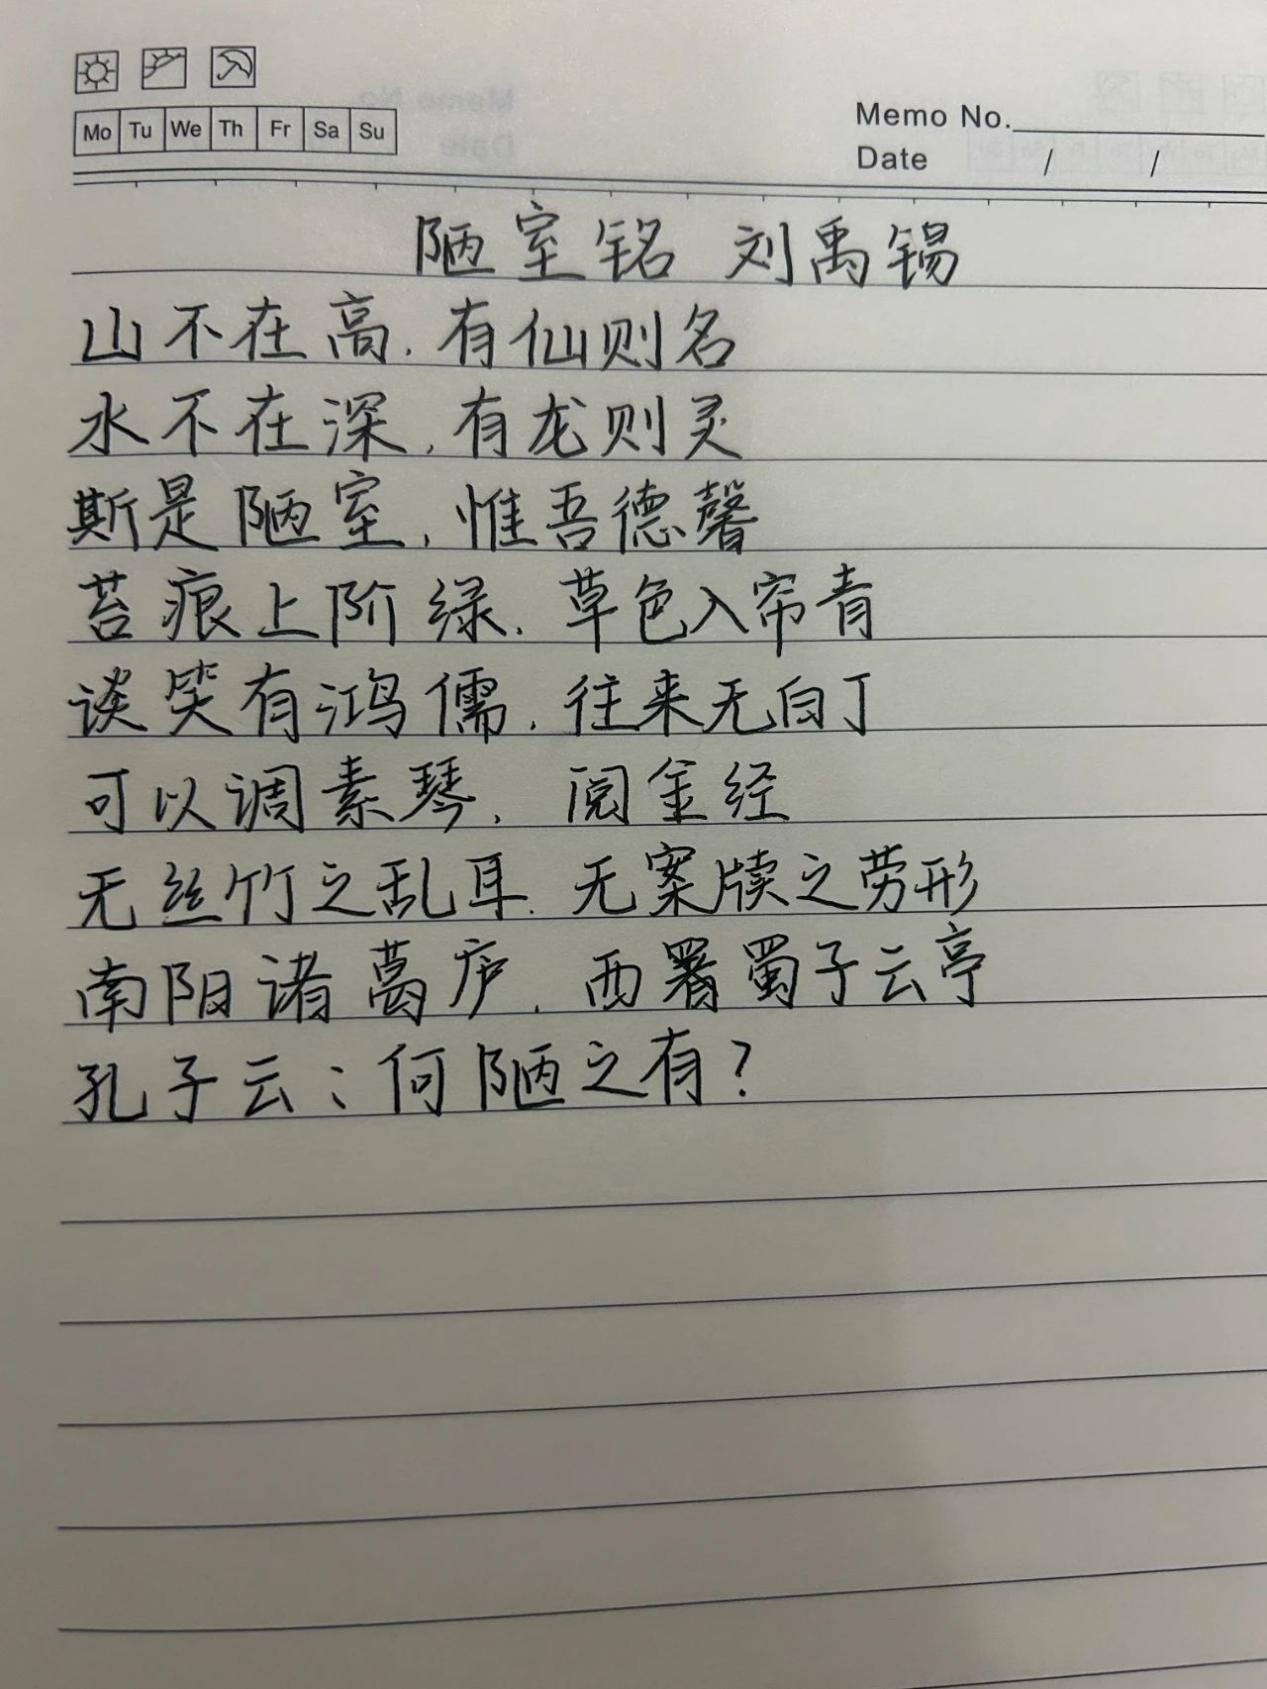 Mo Tu We Th Fr Sa Su
Memo No.
Date / /
陋室铭 刘禹锡
山不在高,有仙则名
水不在深,有龙则灵
斯是陋室,惟吾德馨
苔痕上阶绿,草色入帘青
谈笑有鸿儒,往来无白丁
可以调素琴,阅金经
无丝竹之乱耳,无案牍之劳形
南阳诸葛庐,西署蜀子云亭
孔子云:何陋之有?